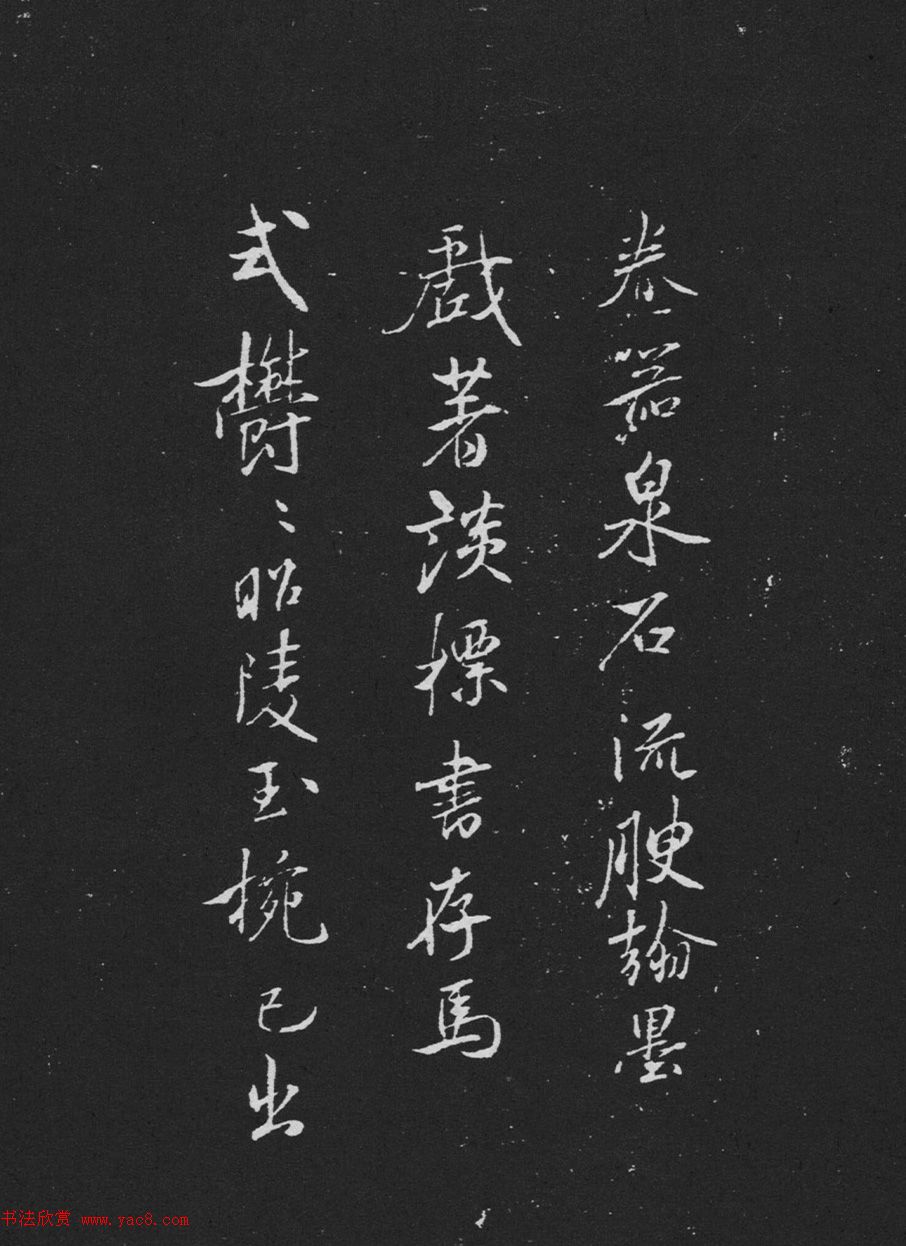 養器泉石流腴翰墨
戲著談標書存馬
式欝〻昭陵玉椀已出
书法欣赏 www.yac8.com